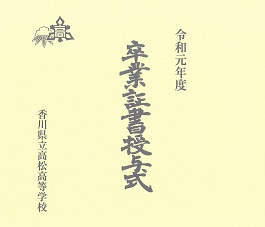 令和元年度
卒業証書授与式
香川県立高松高等学校